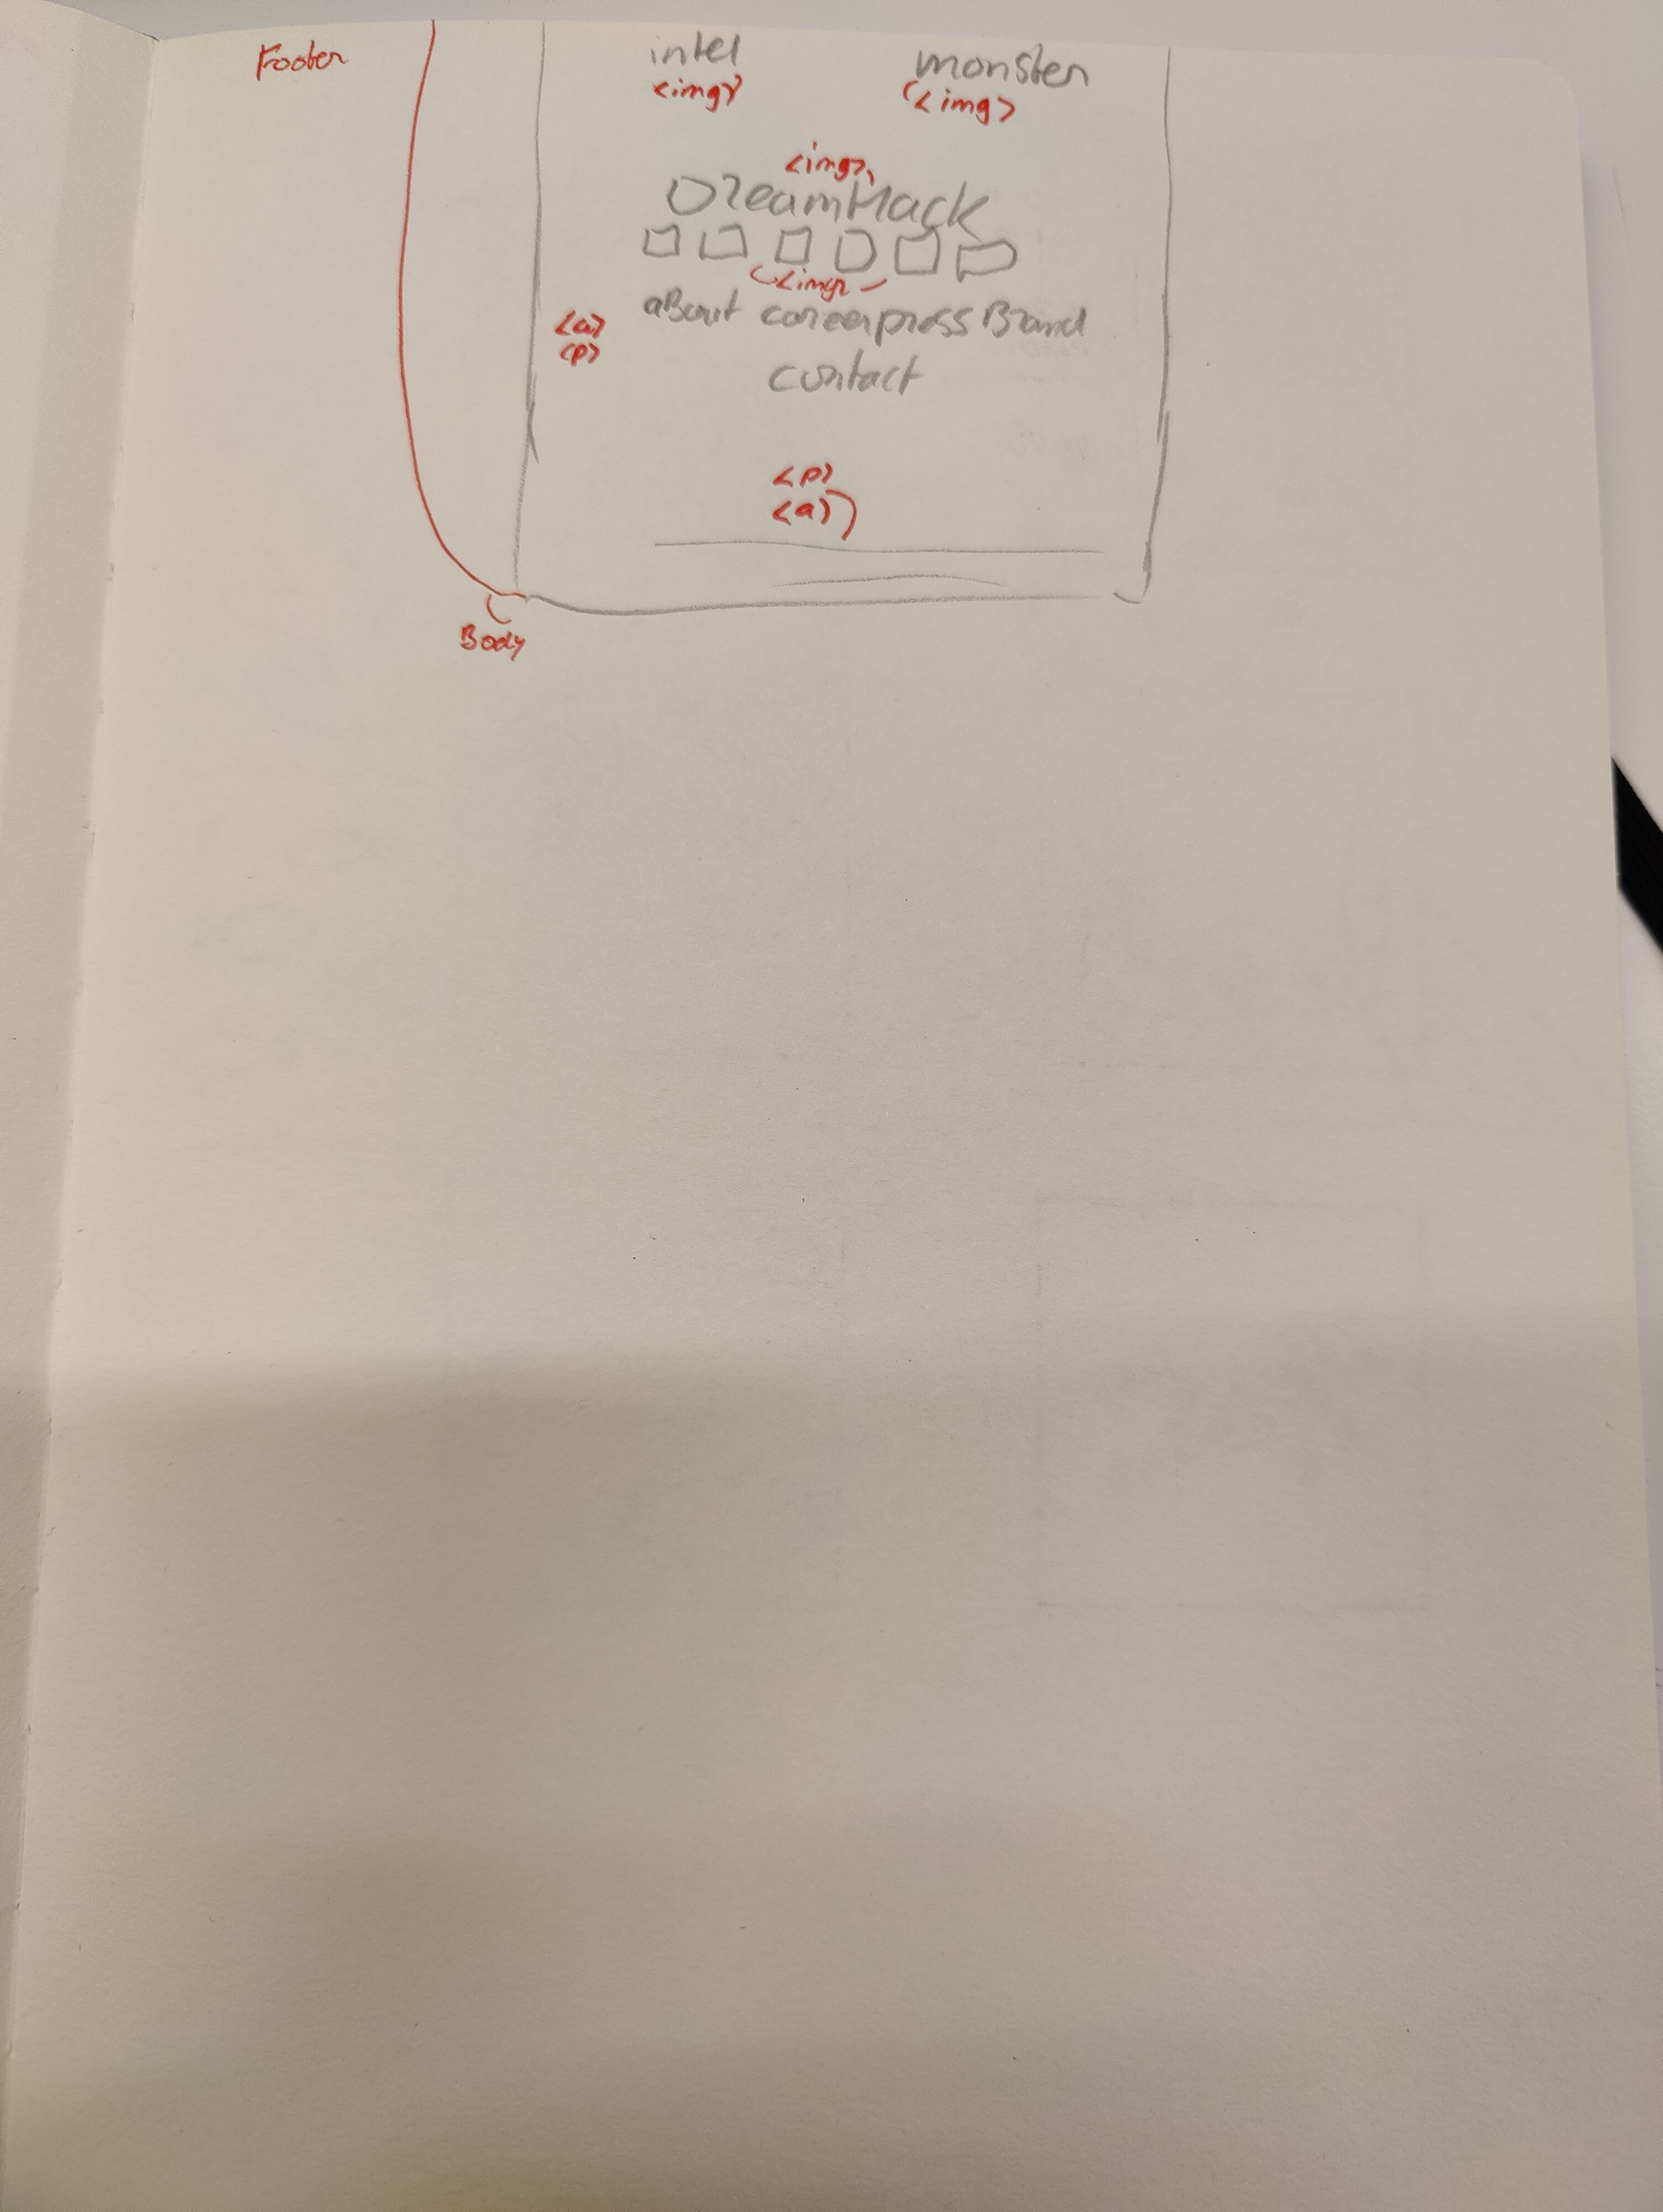 Footer
intel monster
<img> <img>
<img>
DreamHack
<img>
about career press Brand
<a>
<p>
contact
<p>
<a>
Body